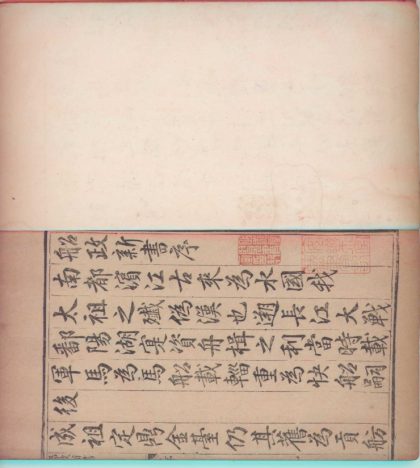 船政新書序
南都濵江古來為水國我
太祖之殲偽漢也遡長江大戰
鄱陽湖寔資舟楫之利當時載
軍馬為馬船載輜重為快船嗣
後
成祖定鼎金臺仍其舊為貢舫